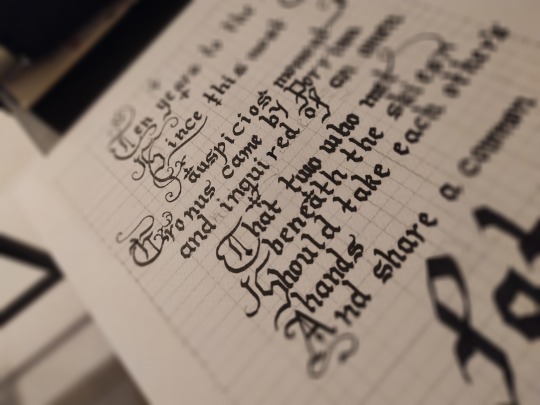 Ten years to the
Since this most
auspicios moment
Cronus came by
and inquired of an omen
That two who met
beneath the
Should take each other's
hands
And share a common